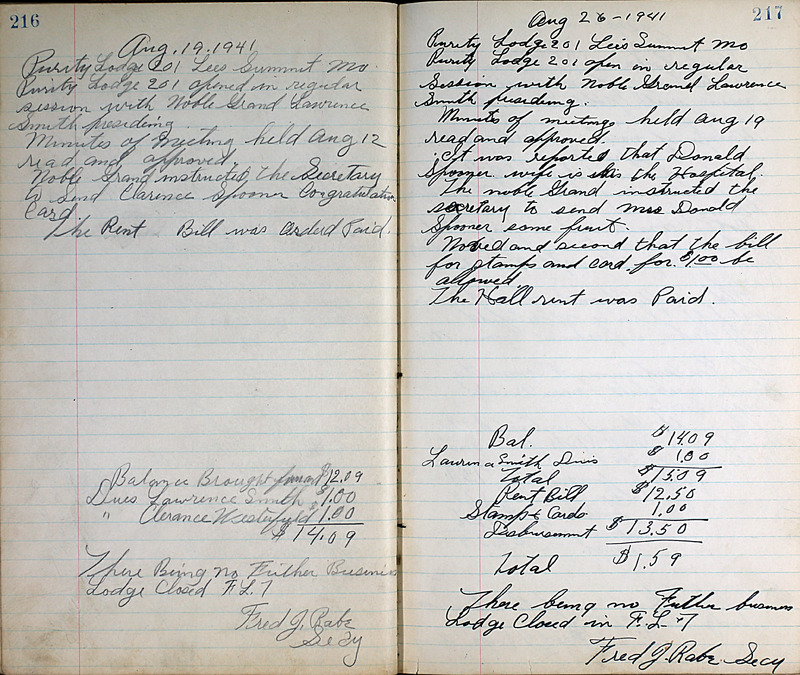 216
Aug. 19. 1941
Purity Lodge 201 Lees Summit Mo.
Purity Lodge 201 opened in regular
session with Noble Grand Lawrence
Smith presiding.
Minutes of Meeting held Aug 12
read and approved.
Noble Grand instructed the Secretary
to send Clarence Spooner Congratulation
Card.
The Rent Bill was orderd Paid.
Balance Brought $12.09
Dues Lawrence Smith $1.00
" Clerance Westerfield 1.00
$14.09
There Being no Futher Business
Lodge Closed F. L. T
Fred J. Rabe
Secy
217
Aug 26 - 1941
Purity Lodge 201 Lees Summit Mo
Purity Lodge 201 open in regular
Session with Noble Grand Lawrence
Smith presiding.
Minutes of meetings held Aug 19
read and approved.
It was reported that Donald
Spooner wife is in the Hospital.
The noble Grand instructed the
secretary to send Mrs Donald
Spooner some fruit.
Moved and second that the bill
for stamps and card for $1.00 be
allowed
The Hall rent was Paid.
Bal. $14.09
Smith Dues $1.00
Total $15.09
Rent Bill $12.50
Stamp & Cards 1.00
Disbursment $13.50
Total $1.59
There being no Futher business
Lodge Closed in F. L. & T
Fred J. Rabe Secy